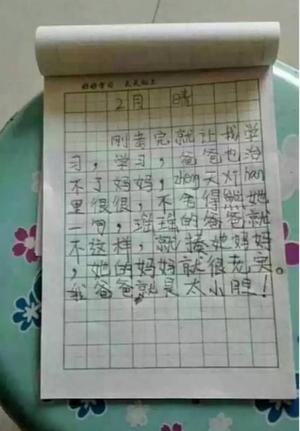 好好学习 天天向上
2月 晴
刚考完就让我学
习,学习,爸爸也治
不了妈妈,zheng天xi lian
里很很,不舍得熊她
一句,瑶瑶的爸爸就
不这样,就揍她妈妈
,她的妈妈就很老实。
我爸爸就是太小胆!